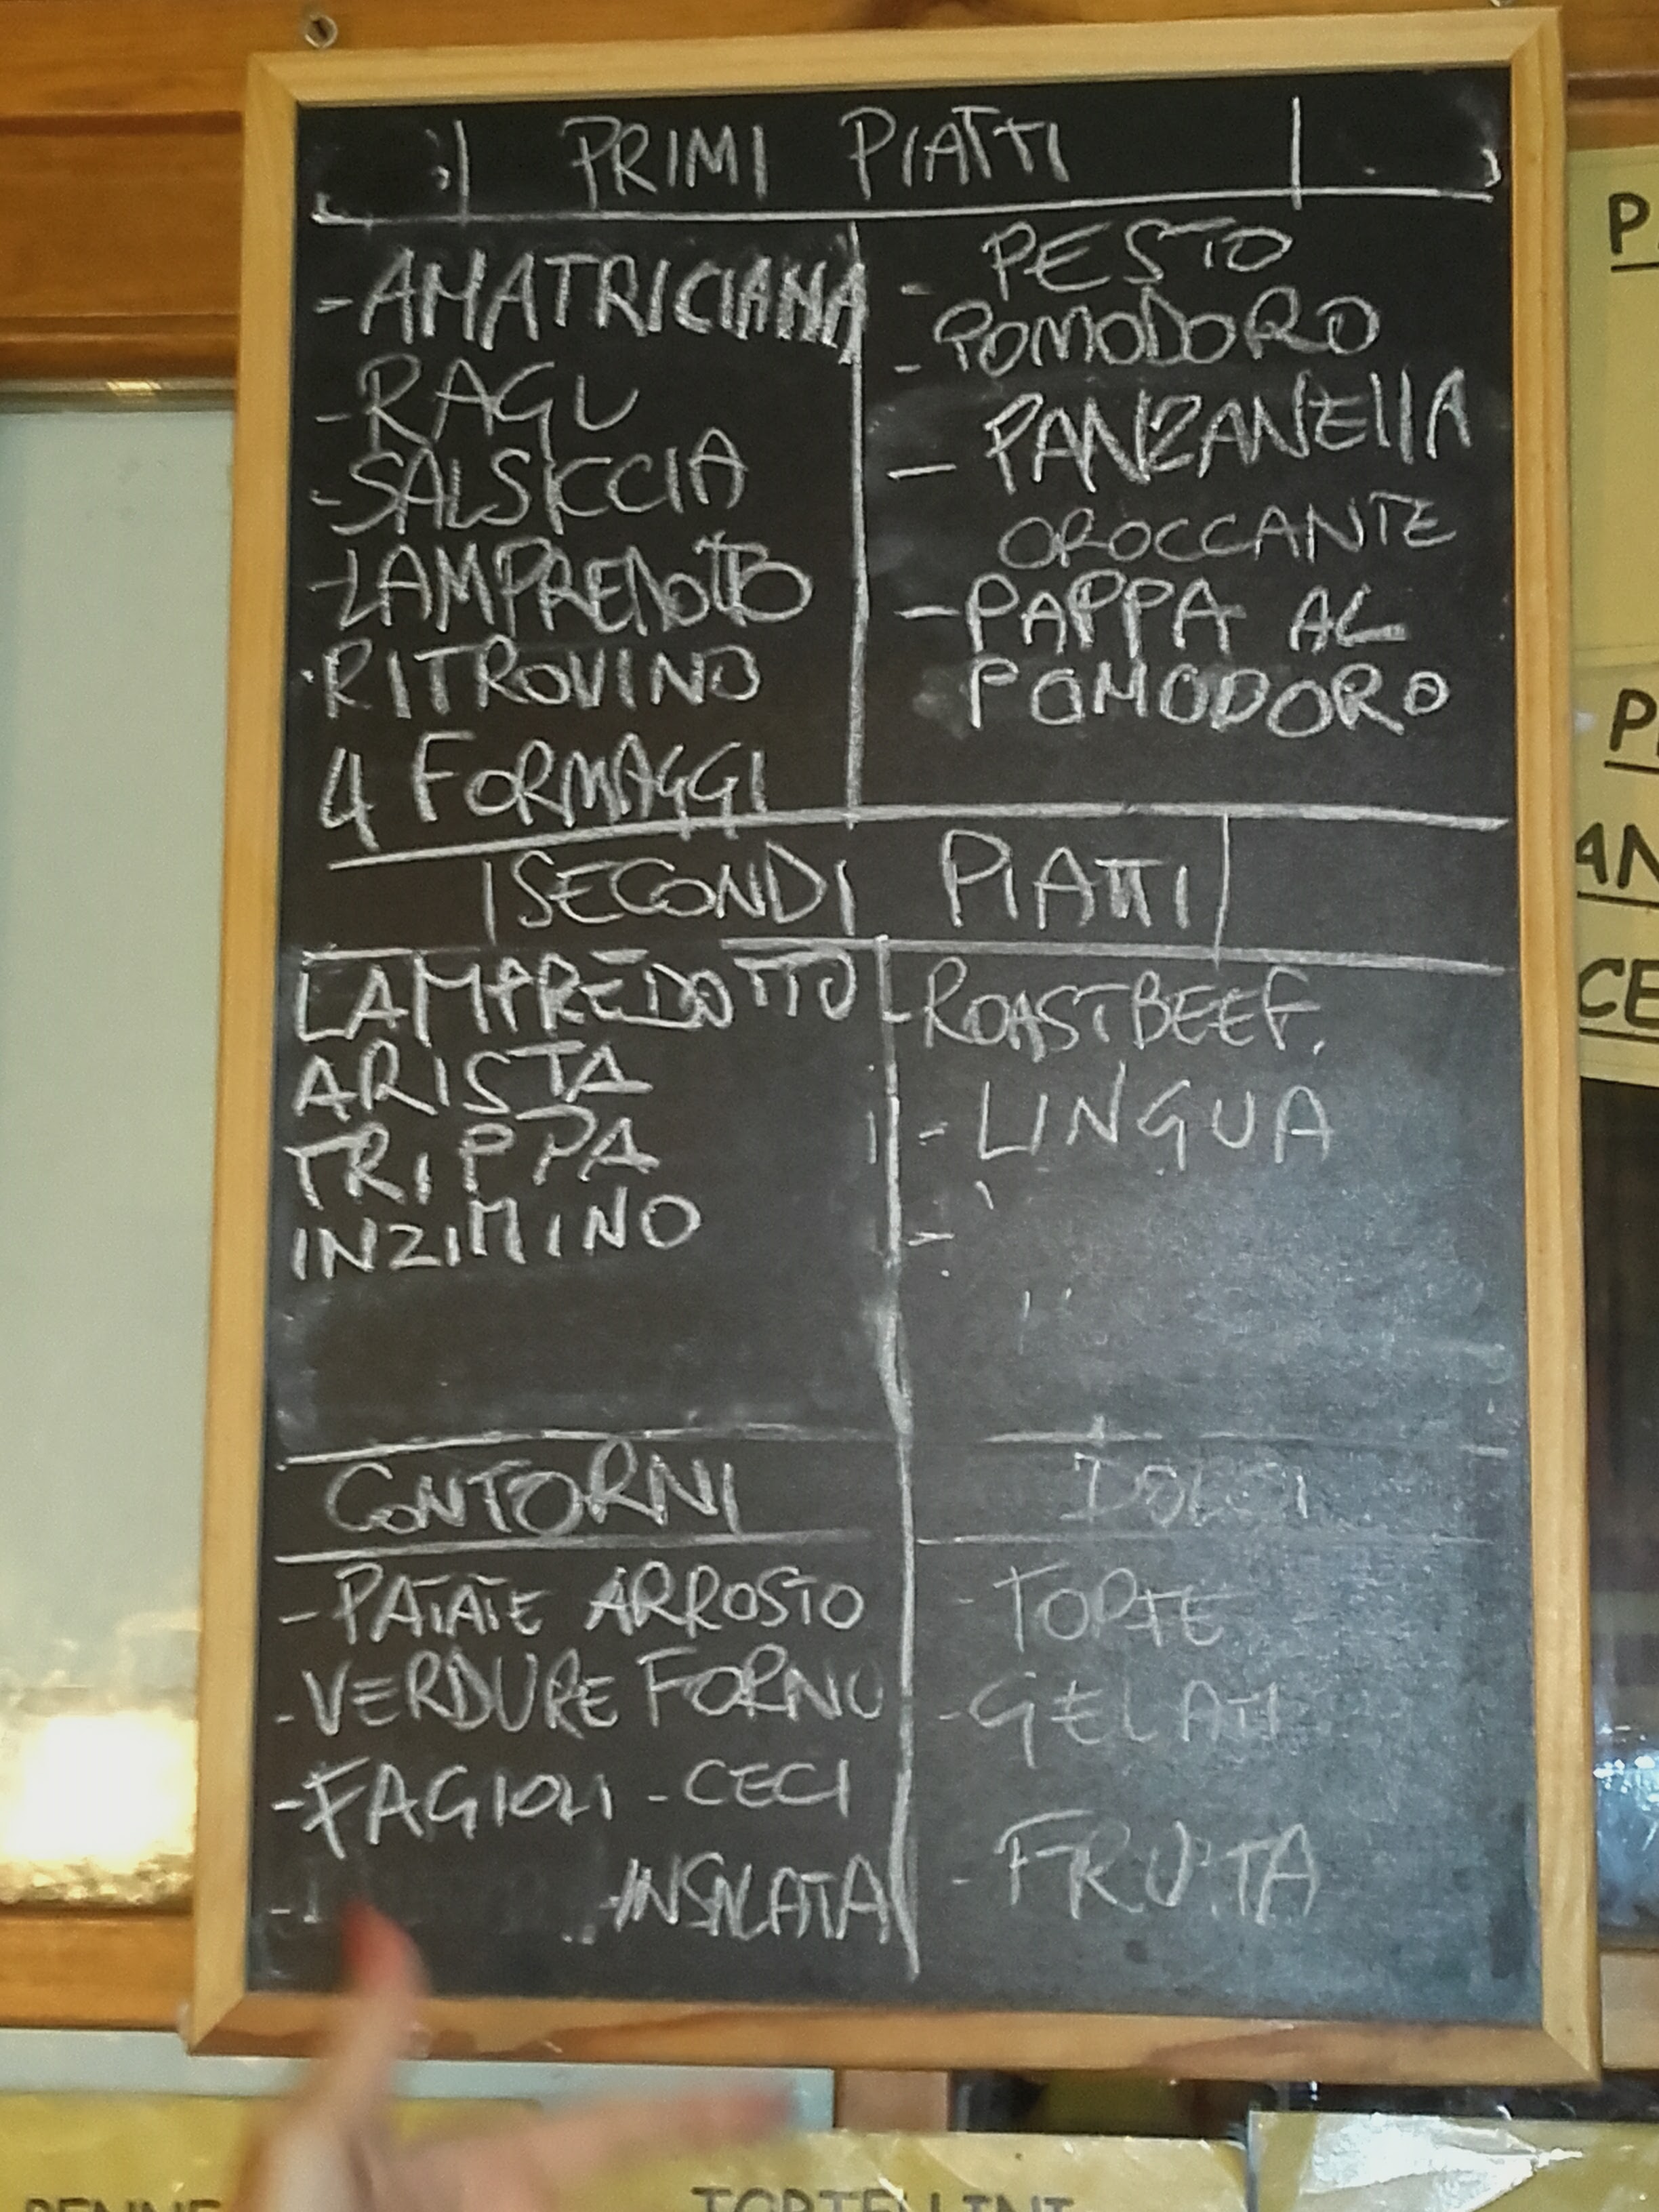 PRIMI PIATTI
-AMATRICIANA
-RAGU
-SALSICCIA
-LAMPREDOTTO
RITROVINO
4 FORMAGGI
- PESTO
- POMODORO
- PANZANELLA
CROCCANTE
-PAPPA AL
POMODORO
SECONDI PIATTI
LAMPREDOTTO
ARISTA
TRIPPA
INZIMINO
-ROASTBEEF.
- LINGUA
CONTORNI
-PATATE ARROSTO
-VERDURE FORNO
-FAGIOLI -CECI
-INSALATA
DOLCI
- TORTE
-GELATI
- FRUTTA
P
P
AN
CE
PENNE
TORTELLINI